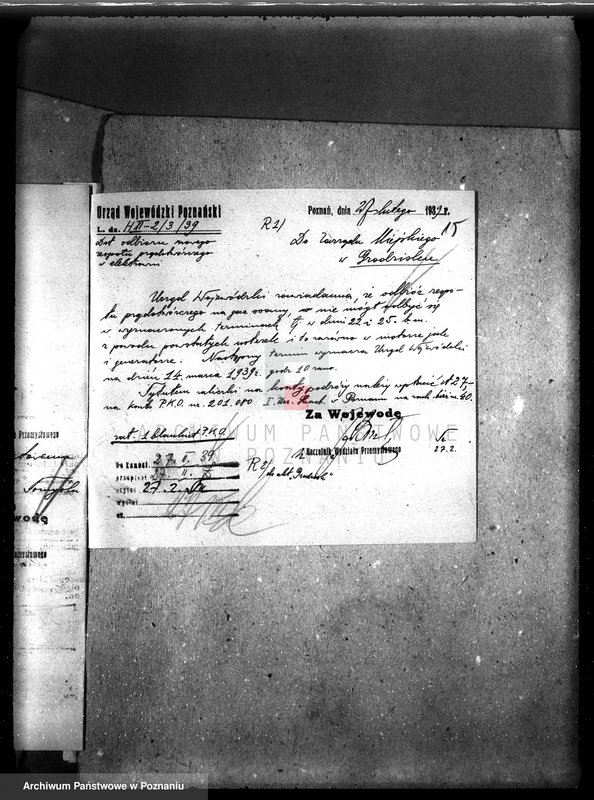 Urząd Wojewódzki Poznański
L. dz. HII-2/3/39
Dot. odbioru nowego
zespołu prądotwórczego
w elektrowni
Poznań, dnia 27 lutego 1939 r.
15
R 1/
Do Zarządu Miejskiego
w Grodzisku
Urząd Wojewódzki zawiadamia, że odbiór zespo-
łu prądotwórczego na gaz ssany, nie mógł odbyć się
w wyznaczonych terminach tj. w dniu 22 i 25. b.m.
z powodu powstałych usterek i to zarówno w motorze jak
i generatorze. Następny termin wyznacza Urząd Wojewódzki
na dzień 14. marca 1939 r. godz 10 rano.
Tytułem zaliczki na koszty podróży należy wpłacić zł 27,-
na konto P.K.O. nr. 201.080 I. Urz. Skarb. w Poznaniu na rach.
Za Wojewodę
zał. 1 blankiet P.K.O.
Naczelnik Wydziału Przemysłowego
27.2.
Do Kancel. 27. II. 39
przepisał 27 II
czytał 27. 2.
wysłał
zł.
R 2/
do akt „Grodzisk"
Przemysłowego
wodę
ARCHIWUM PAŃSTWOWE
W POZNANIU
Archiwum Państwowe w Poznaniu